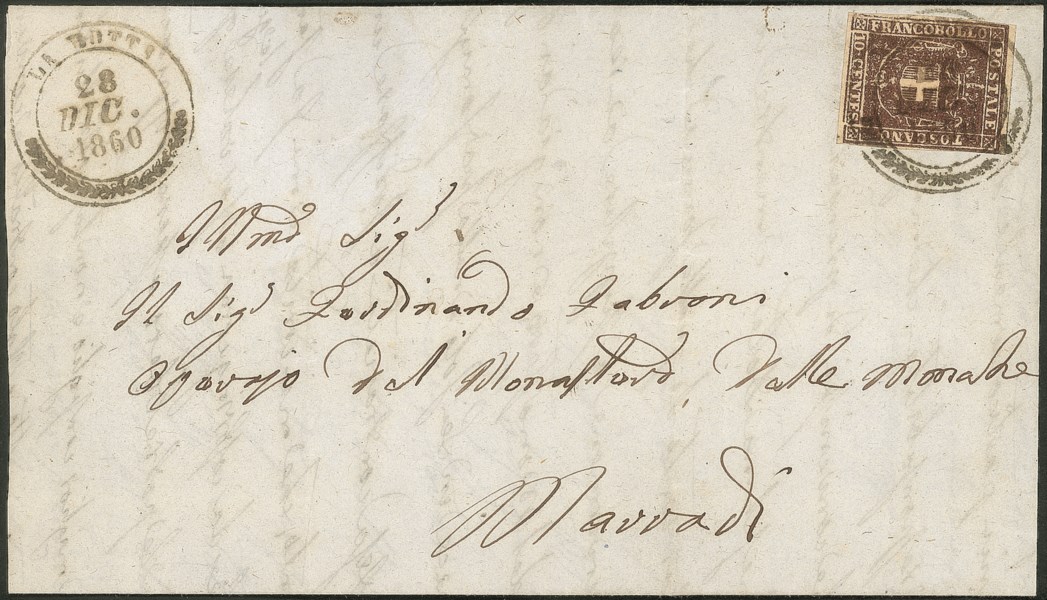 LA ROTTA
28
DIC.
1860
FRANCOBOLLO
POSTALE
TOSCANO
10 CENTES
Illmo Sigr
Il Sigr Ferdinando Fabroni
Operajo del Monastero, delle Monache
Marradi